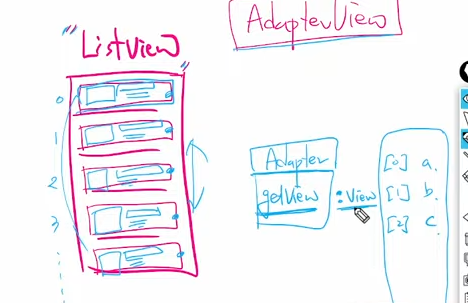 AdapterView
"ListView"
0
1
2
3
Adapter
getView : View
[0] a.
[1] b.
[2] c.